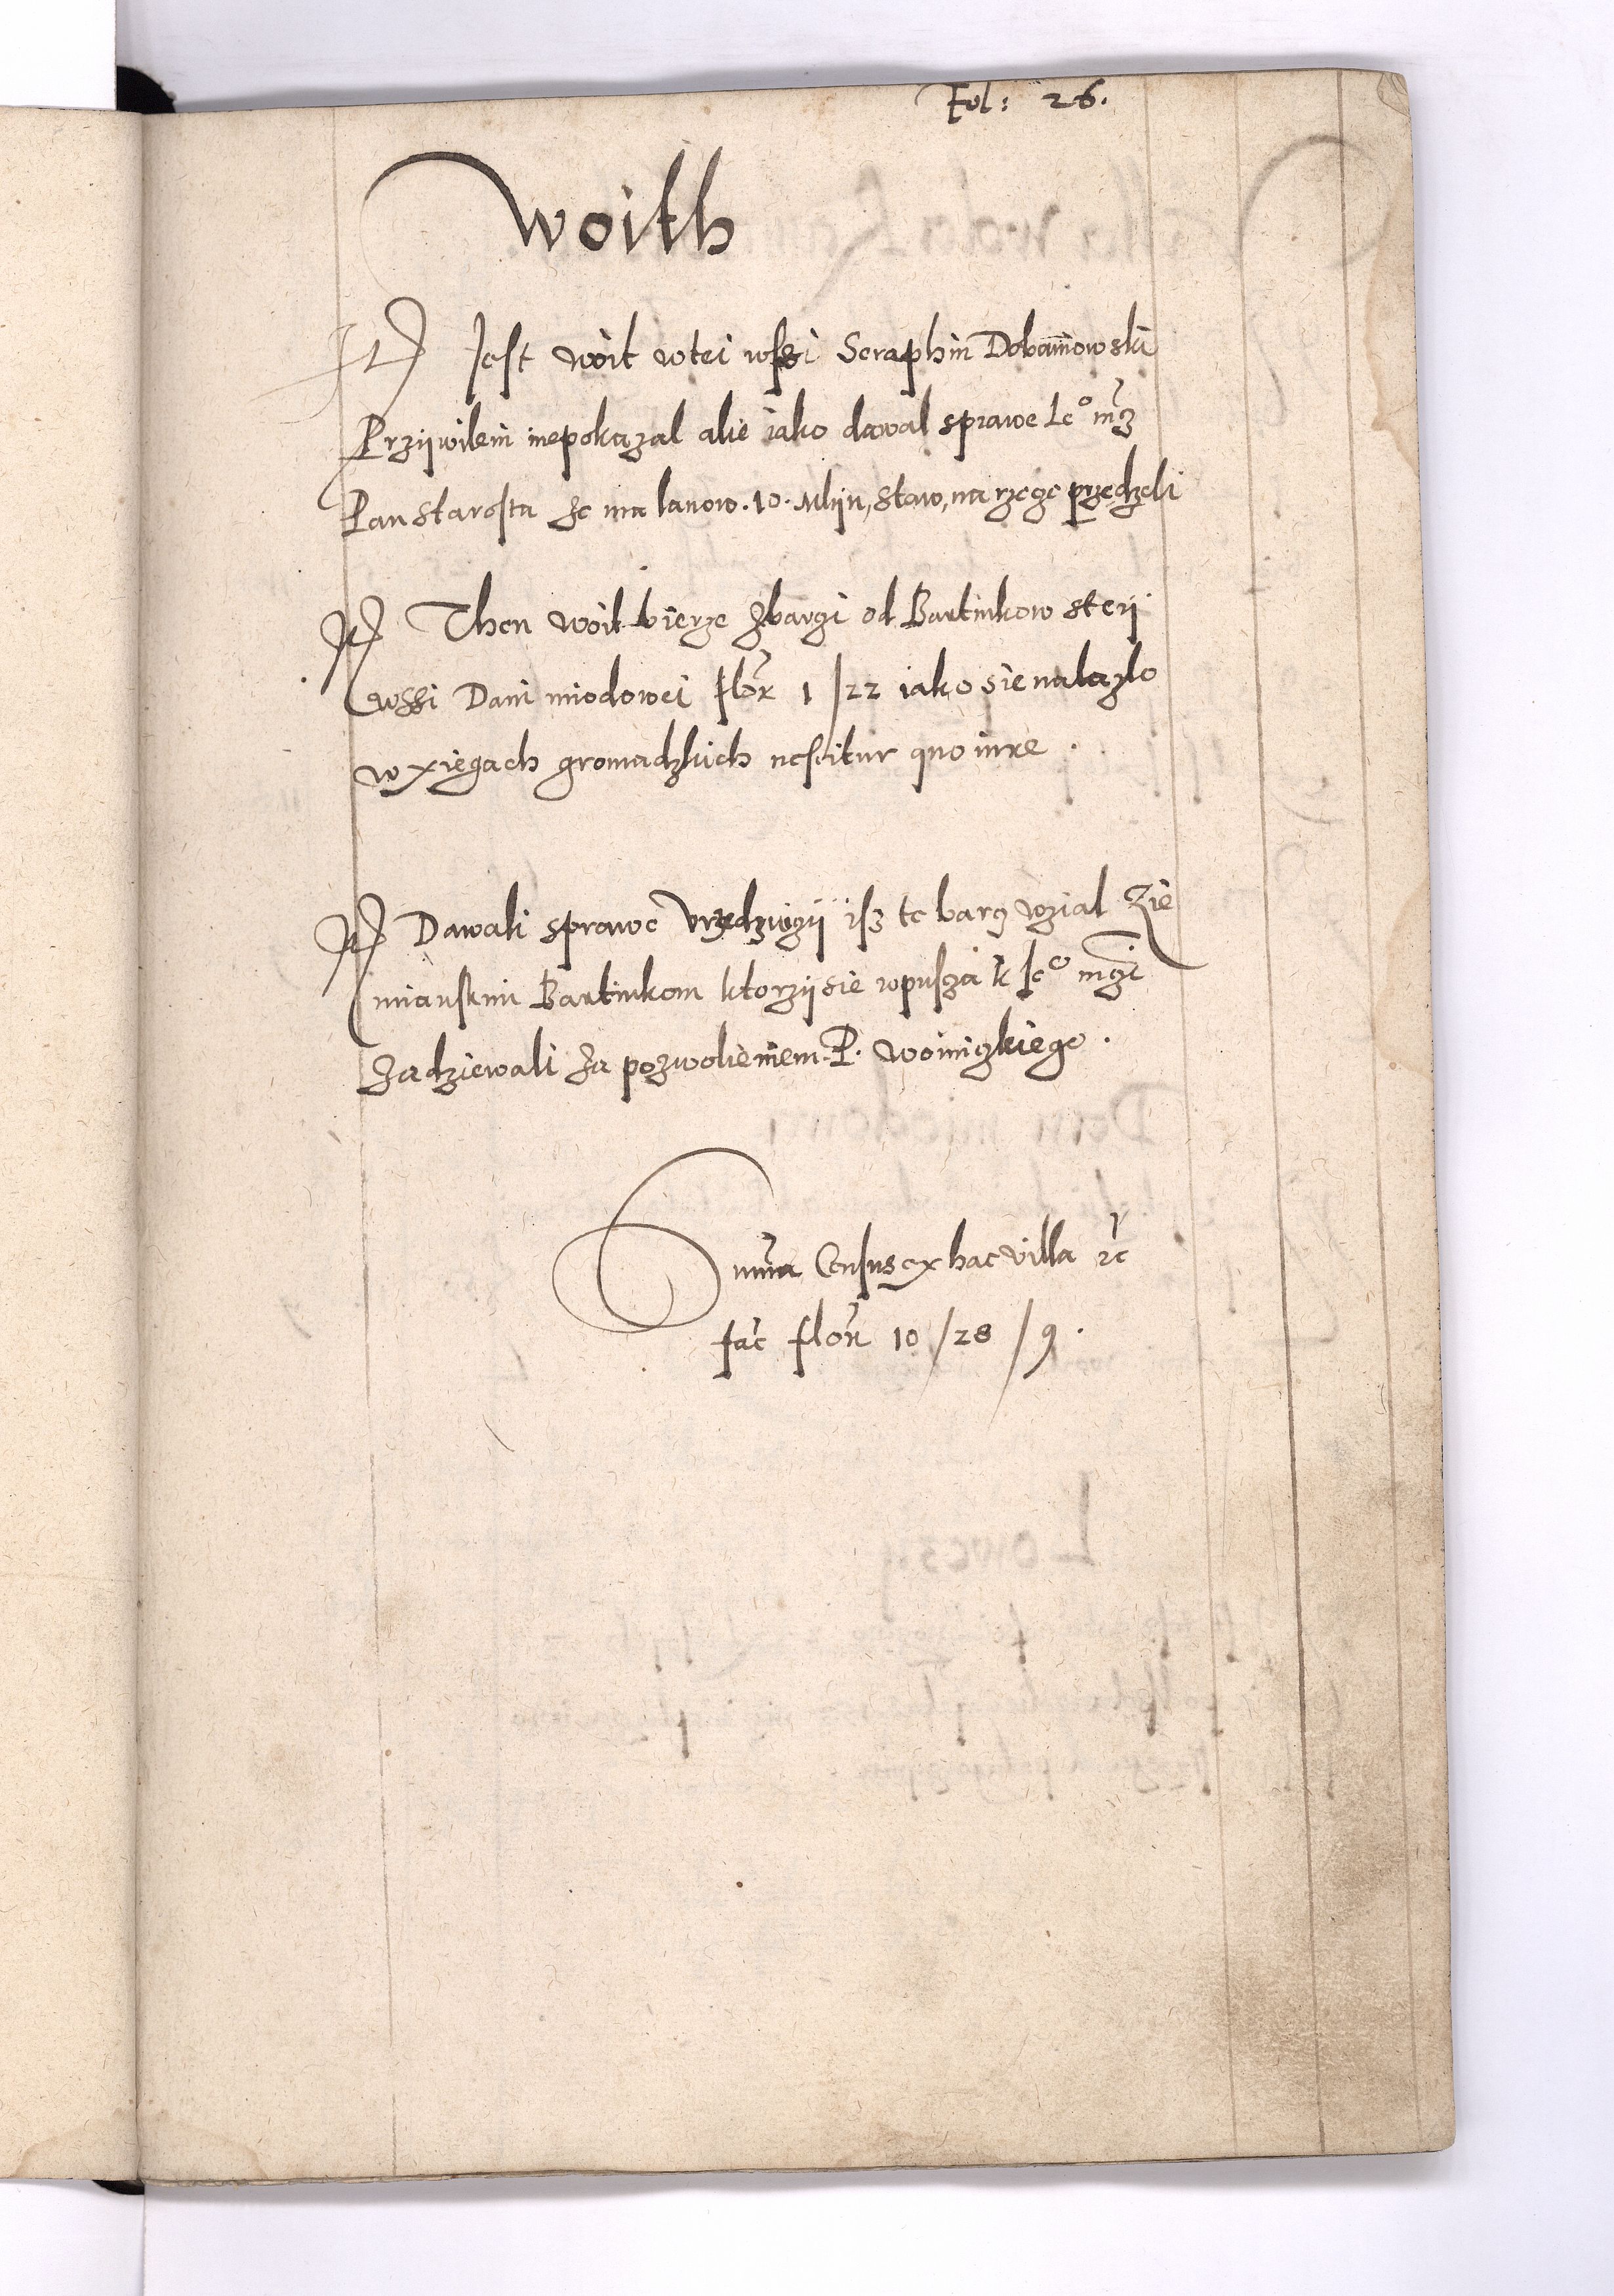 Fol: 26.
Woith
It Jest woit wtei wssi Seraphin Dobaniowski
Przijwilein niepokazal alie iako dawal sprawe Jeº mcz
Pan Starosta ze ma lanow .10. Mlijn, staw, na rzece przedzeli
It Then woit bierze z bargi od Bartnikow sterij
wssi Dani miodowei flor 1 /22 iako sie nalazlo
w xiegach gromadzkich nescitur quo iure .
It Dawali sprawe Vrzedniczij isz te barcz wzial Zie
mianskim Bartnikom ktorzij sie wpuscza k Jeº mczi
zadziewali za pozwolieniem P. Woinickiego .
Summa Census ex hac villa rc
fac flor 10 /28 /9 .